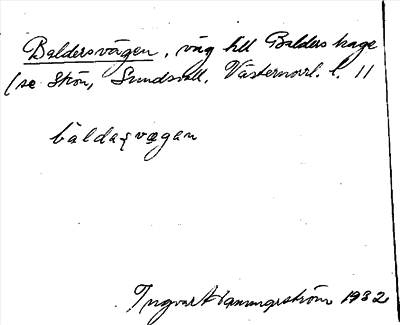 Baldersvägen, väg till Balders hage
(se Skön, Sundsvall, Västernorrl. l. 11
bàldaʂvęgan
Ingvar Hammarström 1932